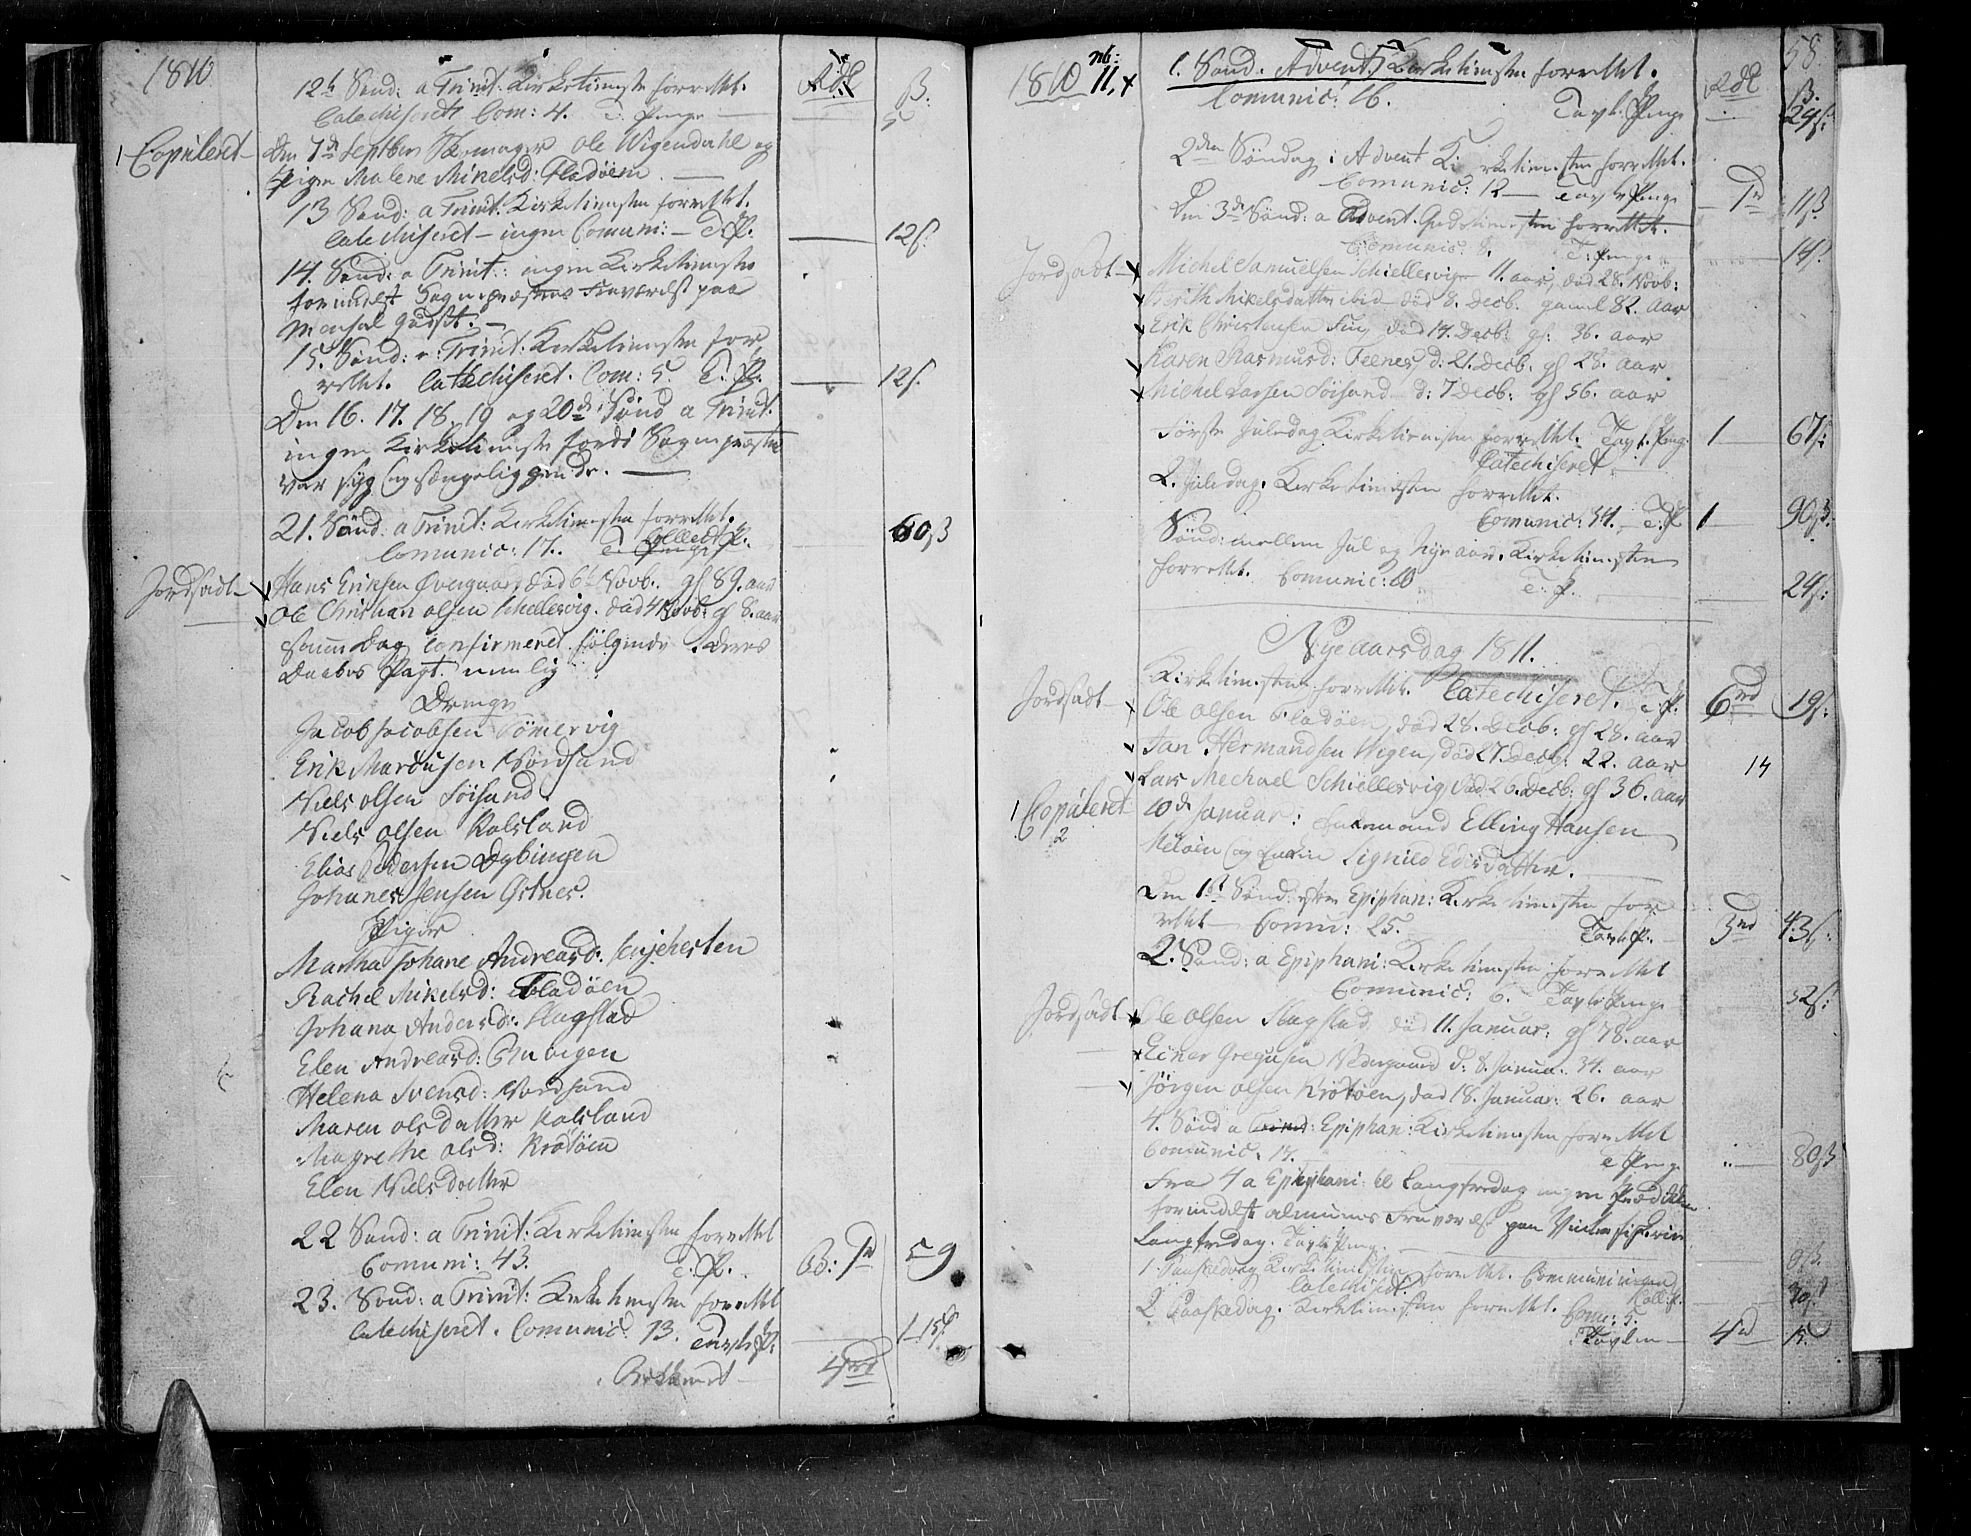 1810
12te Sønd: a Trinit: Kirketienste forrettet.
Catechiseret Com: 4. T: Penge
Rdl ß:
Copuleret
Den 7de Septber Skomager Ole Wigendahl og
Pigen Malene Mikelsd: Fladøen.
13 Sønd: a Trinit: Kirketienesten forrettet.
Catechiseret – ingen Comuni: – T. P. 12ß.
14. Sønd: a Trinit: ingen Kirketieneste
formedelst Sognepræstens Fraværelse paa
Mensal Godset. –
15. Sønd: a: Trinit: Kirketienesten for
rettet. Catechiseret. Com: 5. T. P. 12ß.
Den 16. 17. 18. 19 og 20de Sønd a Trinit.
ingen Kirketieneste fordi Sognepræsten
var syg og sængeliggende.
21. Sønd: a Trinit: Kirketienesten forrettet.
Comunic: 17. 60ß
Jordsadt
Hans Eriksen Overgaard, død 6te Novb. gl 89. aar
Ole Christian olsen Schiellesvig. død 4 Novb: gl 8. aar
Samme Dag Confirmered følgende deres
Daabes Pagt. nemlig
Drenge
Jacob Jacobsen Tömervig
Erik Marcusen Nordsand
Niels olsen Töisund
Niels olsen Kalsland
Elias Pedersen Dybingen
Johanes Jensen Ostnes.
Piger
Martha Johane Andreasd: Senjehesten
Rachel Mikelsd: Fladøen
Johana Andersd: Slagstad
Elen Andreasd:
Helena Svensd: Nordsand
Maren olsdatter Kalsland
Magrethe olsd: Krötöen
Elen Nielsdatter
22 Sønd: a Trinit: Kirketienesten forrettet
Comuni: 43. T. P. 59
23. Sønd: a Trinit: Kirketienesten forrettet
Catechiseret. Comunic: 13. Tavle P: 1 – 15ß.
4rd
58
1810 nb: 11, x
1. Sønd. Advent, Kirketienesten forrettet.
Comunic: 16. Tavl. Penge 24ß:
Rdl ß.
2den Søndag i Advent Kirketienesten forrettet.
Comunic: 12 – Tavle Penge 1rd 11ß
Den 3de Sønd: a Advent. Gudstienesten forrettet.
Comunic: 8. T: Penge 14ß
Jordsadt
Michel Samuelsen Schiellesvig 11. aar, død 28. Novb:
Berith Mikelsdatter ibid død 8. Decb: gamel 82. aar
Erik Christensen død 17. Decb: gl: 36. aar
Karen Rasmusd: Feenes, d: 21. Decb. gl 28. aar
Michel Larsen Töisund d: 7 Decb: gl 56. aar
Første Juledag Kirketienesten forrettet. Tavl. Peng: 1 67ß:
Catechiseret
2. Juledag. Kirketienesten forrettet.
Comunic: 34. T. P 1 90ß.
Sønd: mellem Jul og Nyeaar. Kirketienesten
forrettet. Comunic: 10 T. P. 24ß:
Nyeaarsdag 1811.
Kirketienesten forrettet. Catechiseret. T. P. 6rd 19ß:
Jordsadt
Ole olsen Fladøen, død 28. Decb: gl 28. aar
Jan Hermandsen Wigen, død 27. Decb: 22. aar
Lars Mechael Schiellesvig død 26. Decb: gl 36. aar
14
Copuleret
2
10de Januar: Enkemand Elling Hansen
Meløen og Enken Signild Edisdatter.
Den 1st Sønd: efter Epiphan: Kirketienesten for
rettet – Comu: 25. Tavl. P. 3rd 43ß:
2. Sønd: a Epiphani: Kirketienesten forrettet
Comunic: 6. Tavle Penge 32ß:
Jordsadt
Ole olsen Slagstad død 11. Januar: gl 78. aar
Einer Gregusen Nedergaard d: 8. Janua: 34. aar
Jörgen olsen Krötöen, død 18. Januar: 26. aar
4. Sønd a Trinit: Epiphan: Kirketienesten forrettet
Comunic: 17. T Peng 80ß
Fra 4 a Epiphani: til Langfredag ingen Prædiken
formedelst almuens Fraværelse paa Vinterfiskerie
Langfredag. Tavle Penge 9ß.
1 Paaskedag Kirketienesten forrettet. Comunic ingen
Catechiset. Coll: P.
2 Paaskedag. Kirketienesten forrettet. Comu: 5.
Tavlen 4rd 15